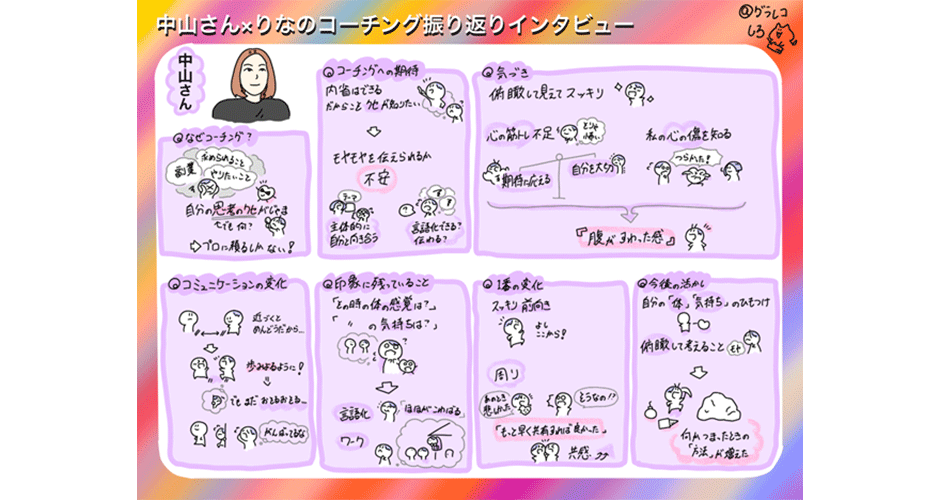 中山さん×りなのコーチング振り返りインタビュー
@グラレコ
しろ
中山さん
Qなぜコーチング?
求められること
副業
やりたいこと
自分の思考のクセがじゃま
でも何?
⇨プロに頼るしかない!
Qコーチングへの期待
内省はできる
だからこそクセが知りたい
モヤモヤを伝えられるか
不安
テーマ
主体的に
自分と向き合う
言語化できる?
伝わる?
Q気づき
俯瞰して見えてスッキリ
心の筋トレ不足
期待に応える
自分を大切
私の心の傷を知る
つらかった!
『腹がすわった感』
Qコミュニケーションの変化
近づくと
めんどうだから…
歩みよるように!
でもまだおそるおそる…
がんばってるな
Q印象に残っていること
「その時の体の感覚は?」
「〃の気持ちは?」
言語化
「ほほがこわばる」
ワーク
Q1番の変化
スッキリ前向き
よし
ここから!
周り
あのとき
悲しかった
そうなの!?
「もっと早く共有すれば良かった」
共感
Q今後の活かし
自分の「体」「気持ち」のひもつけ
俯瞰して考えること
何かつまったときの
「方法」が増えた